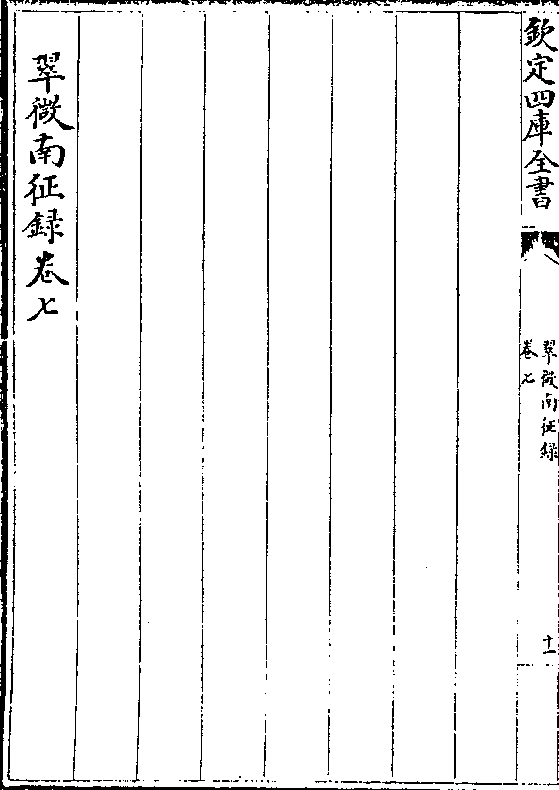 欽定四庫全書
翠微南征録
卷七
十一
翠微南征録卷七